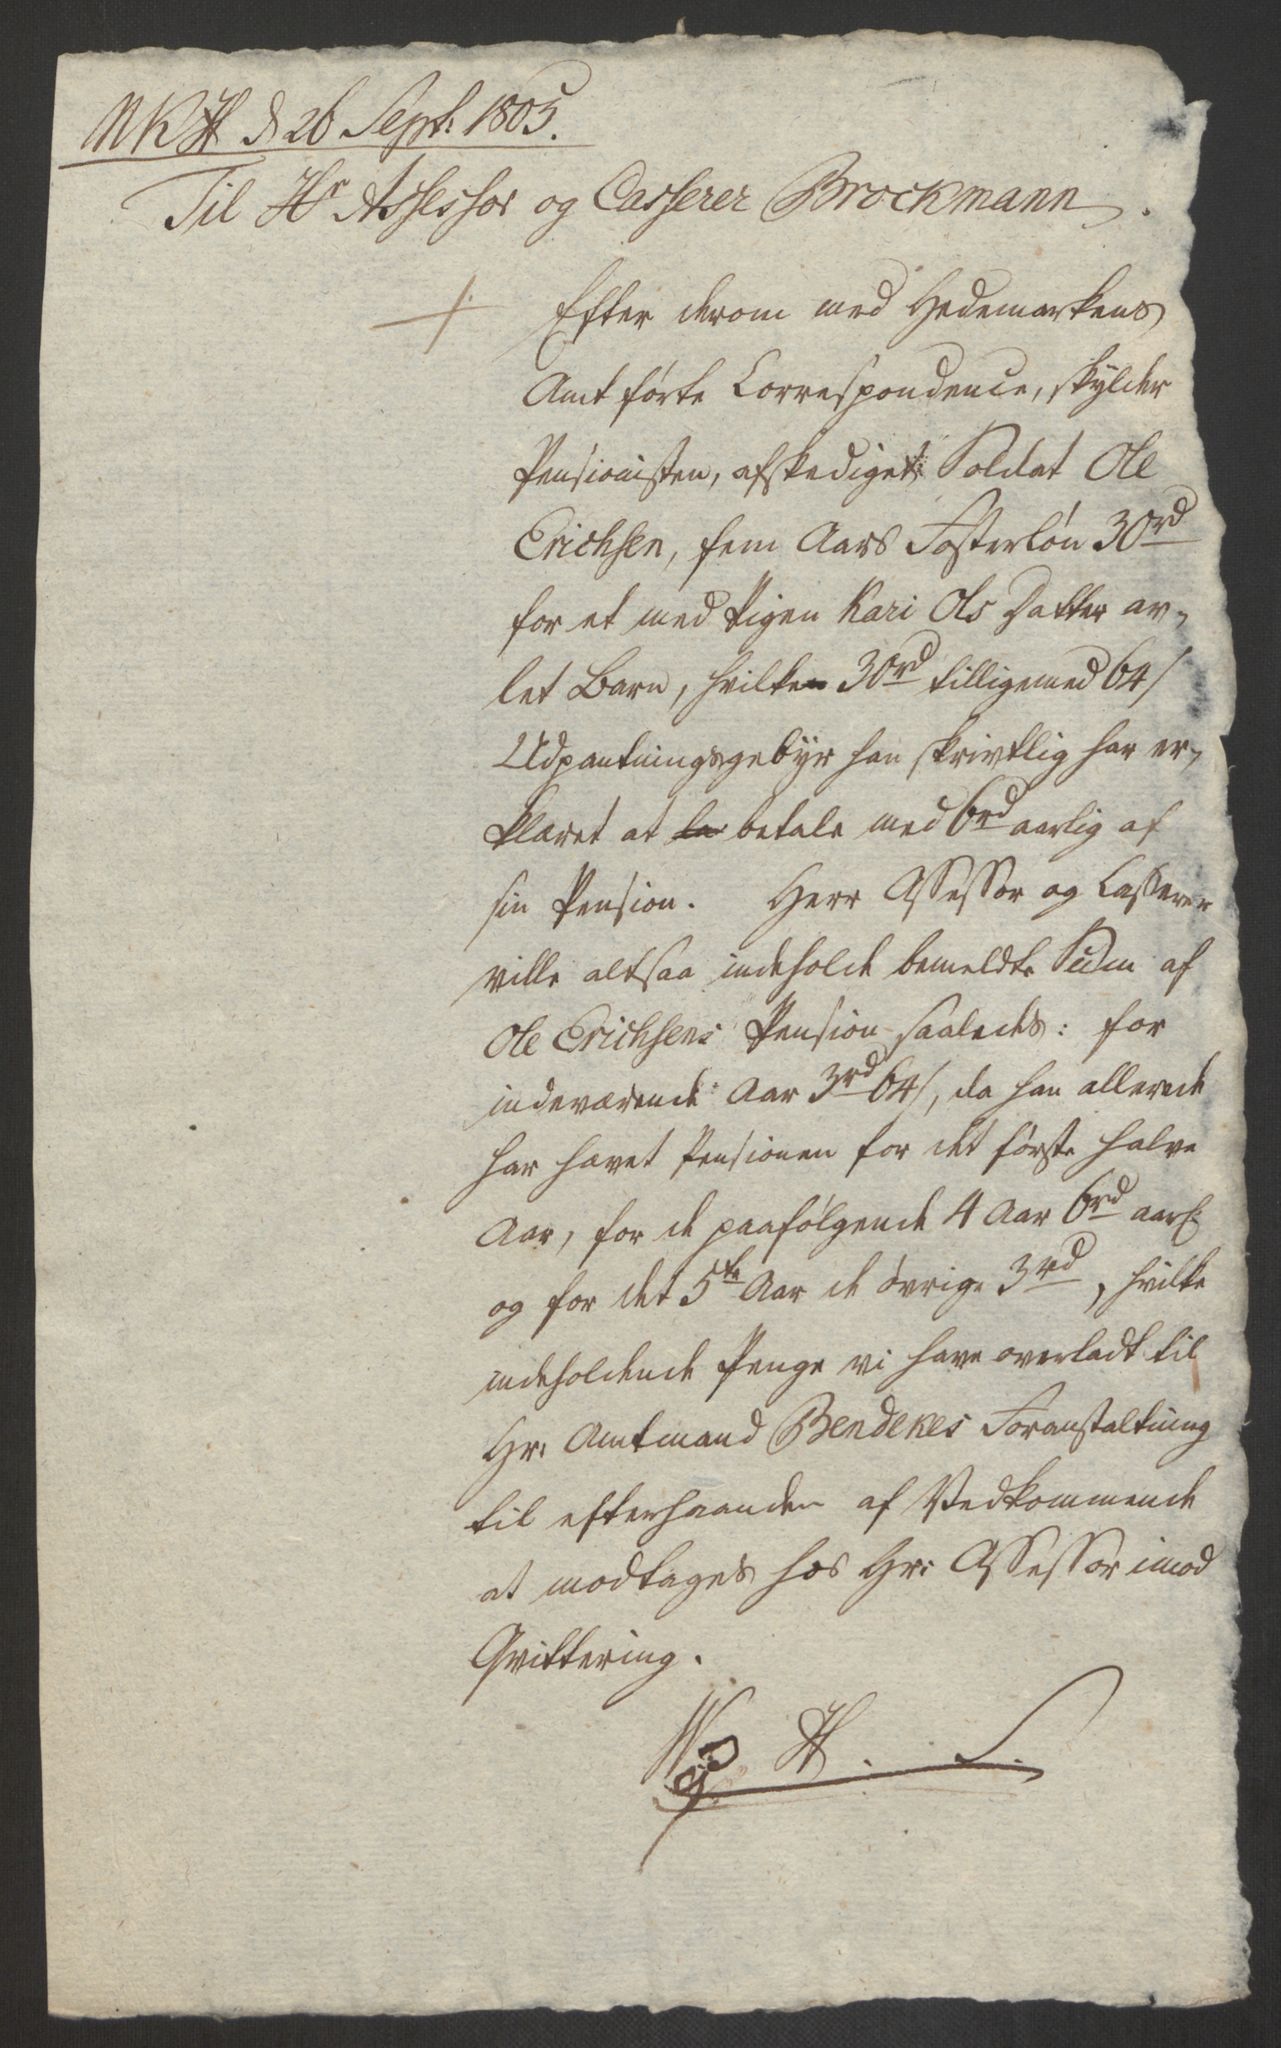 NKH d 26 Sept: 1805.
Til Hr Assessor og Casserer Brockmann.
Efter derom med Hedemarkens
Amt førte Correspondence, skylder
Pensionisten, afskediget Soldat Ole
Erichsen, fem Aars Fosterløn 30rd
for et med Pigen Kari Ols Datter av-
let Barn, hvilke 30rd tilligemed 64/
Udpantningsgebyr han skrivtlig har er-
klæret at betale med 6rd aarlig af
sin Pension. Herr Assessor og Casserer
ville altsaa indeholde bemeldte Sum af
Ole Erichsens Pension saaledes: for
indeværende Aar 3rd 64/, da han allerede
har havet Pensionen for det første halve
Aar, for de paafølgende 4 Aar 6rd aarl.
og for det 5te Aar de øvrige 3rd, hvilke
indeholdende Penge vi have overladt til
Hr: Amtmand Bendekes Foranstaltning
til efterhaanden af Vedkommende
at modtages hos Hr: Assessor imod
Qvittering.
H. S.